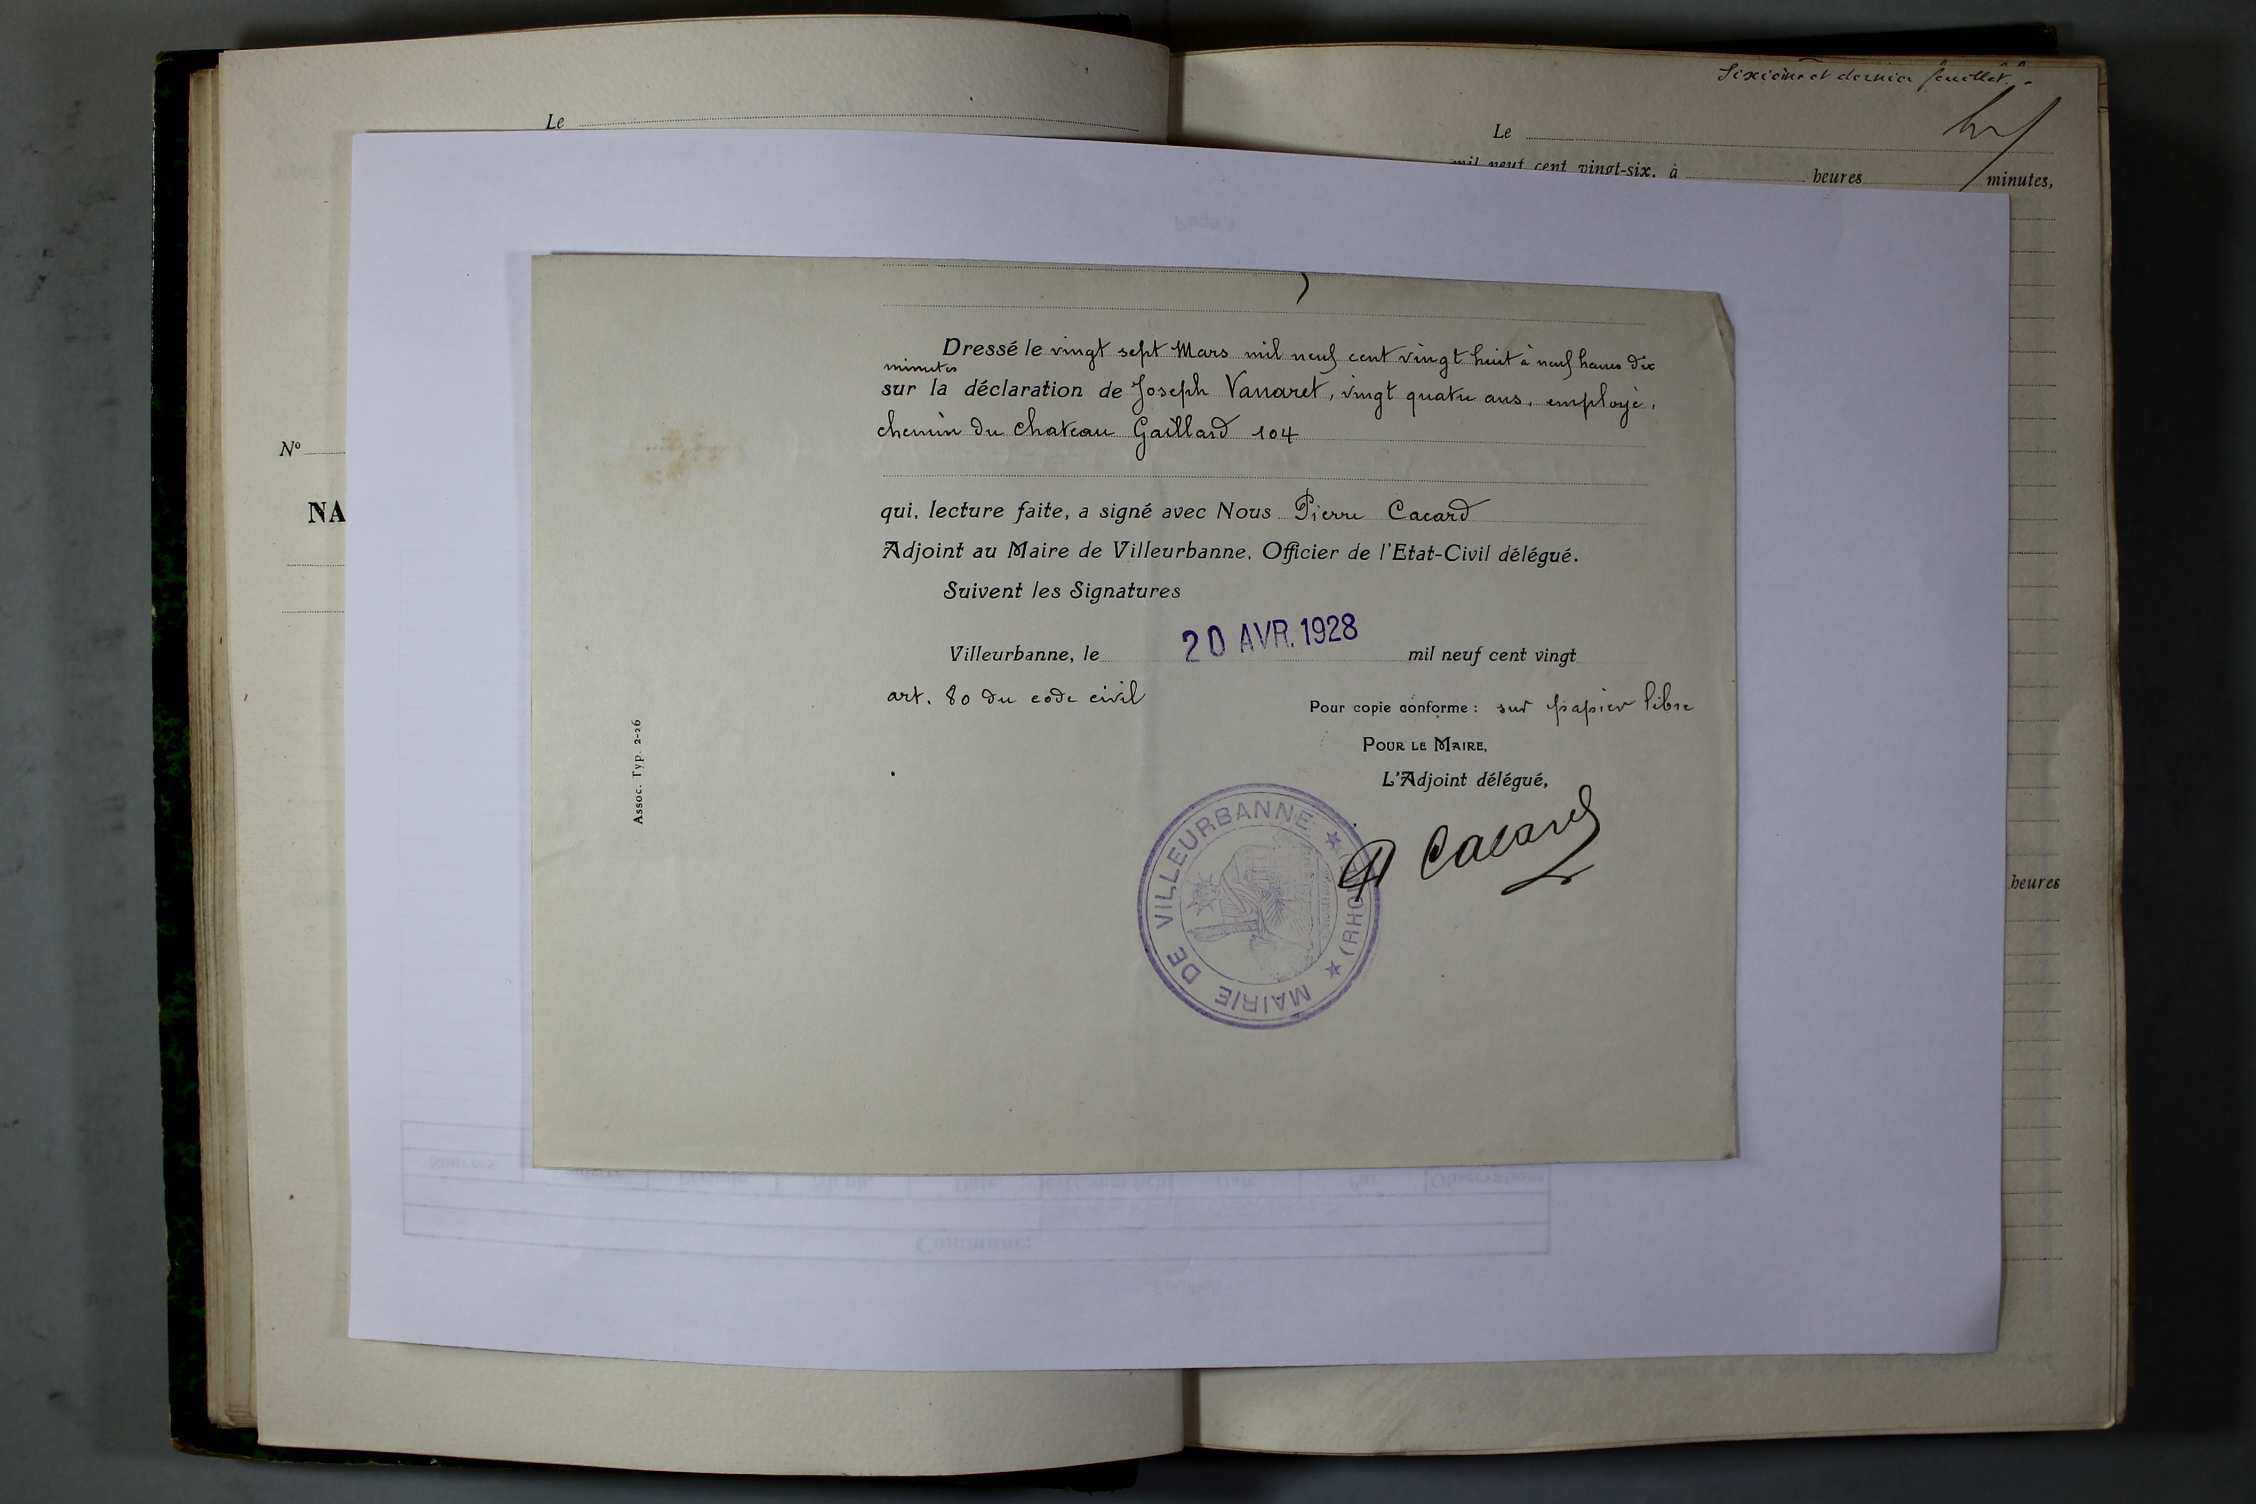 Le
Nº
NA
Sixième et dernier feuillet.
Le
mil neuf cent vingt-six, à heures minutes,
heures
Dressé le vingt sept Mars mil neuf cent vingt huit à neuf heures dix
minutes
sur la déclaration de Joseph Vanaret, vingt quatre ans, employé,
chemin du chateau Gaillard 104
qui, lecture faite, a signé avec Nous Pierre Cacard
Adjoint au Maire de Villeurbanne, Officier de l'Etat-Civil délégué.
Suivent les Signatures
Villeurbanne, le 20 AVR. 1928 mil neuf cent vingt
art. 80 du code civil
Pour copie conforme : sur papier libre
POUR LE MAIRE,
L'Adjoint délégué,
P Cacard
MAIRIE DE VILLEURBANNE ★ (RHÔNE) ★
Assoc. Typ. 2-26
Commune: